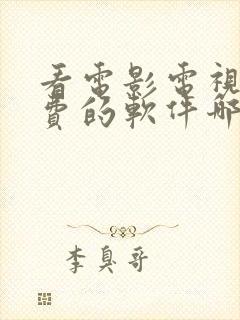 看電影電視
費的軟件哪
李臭哥